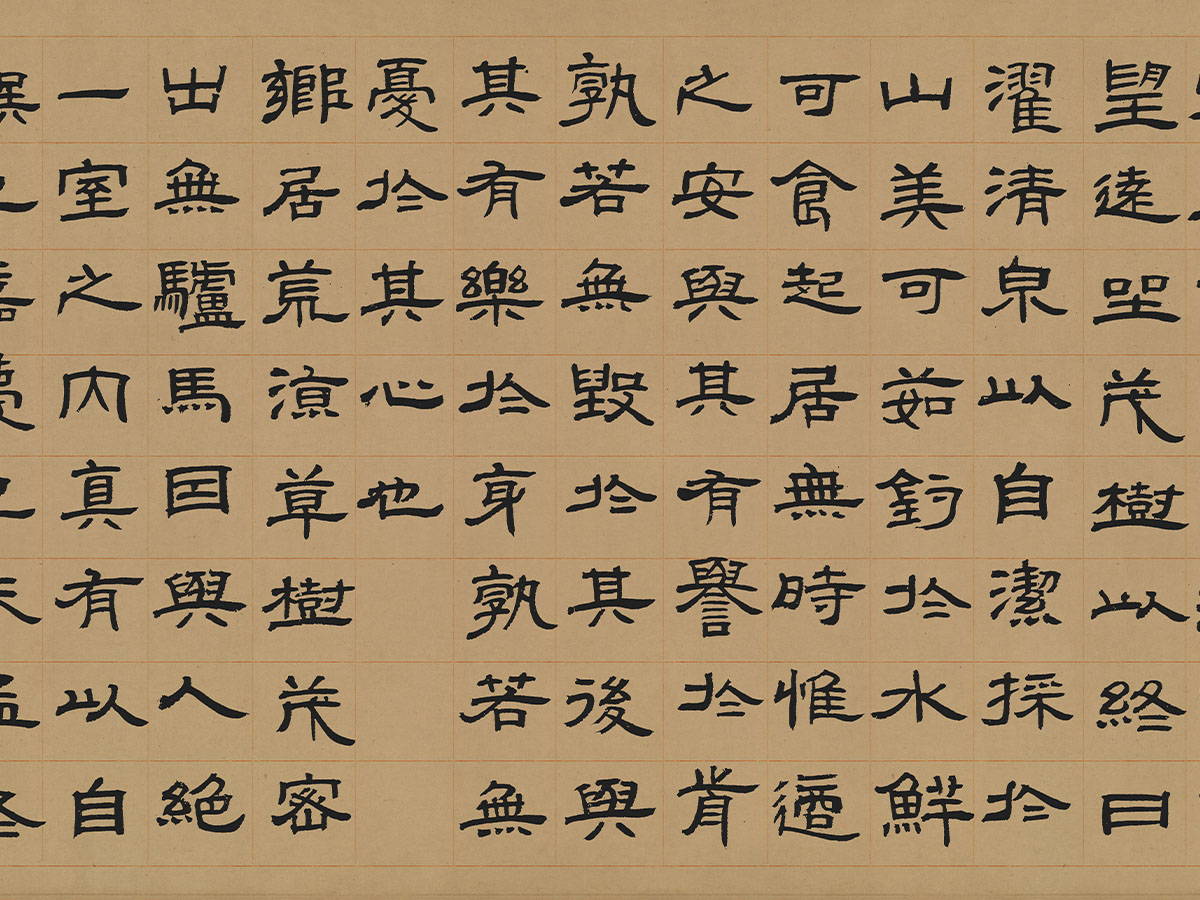 望遠坐茂樹以終日
濯清泉以自潔採於
山美可茹釣於水鮮
可食起居無時惟適
之安與其有譽於前
孰若無毀於其後與
其有樂於身孰若無
憂於其心也
鄉居荒涼草樹茂密
出無驢馬因與人絕
一室之内真有以自